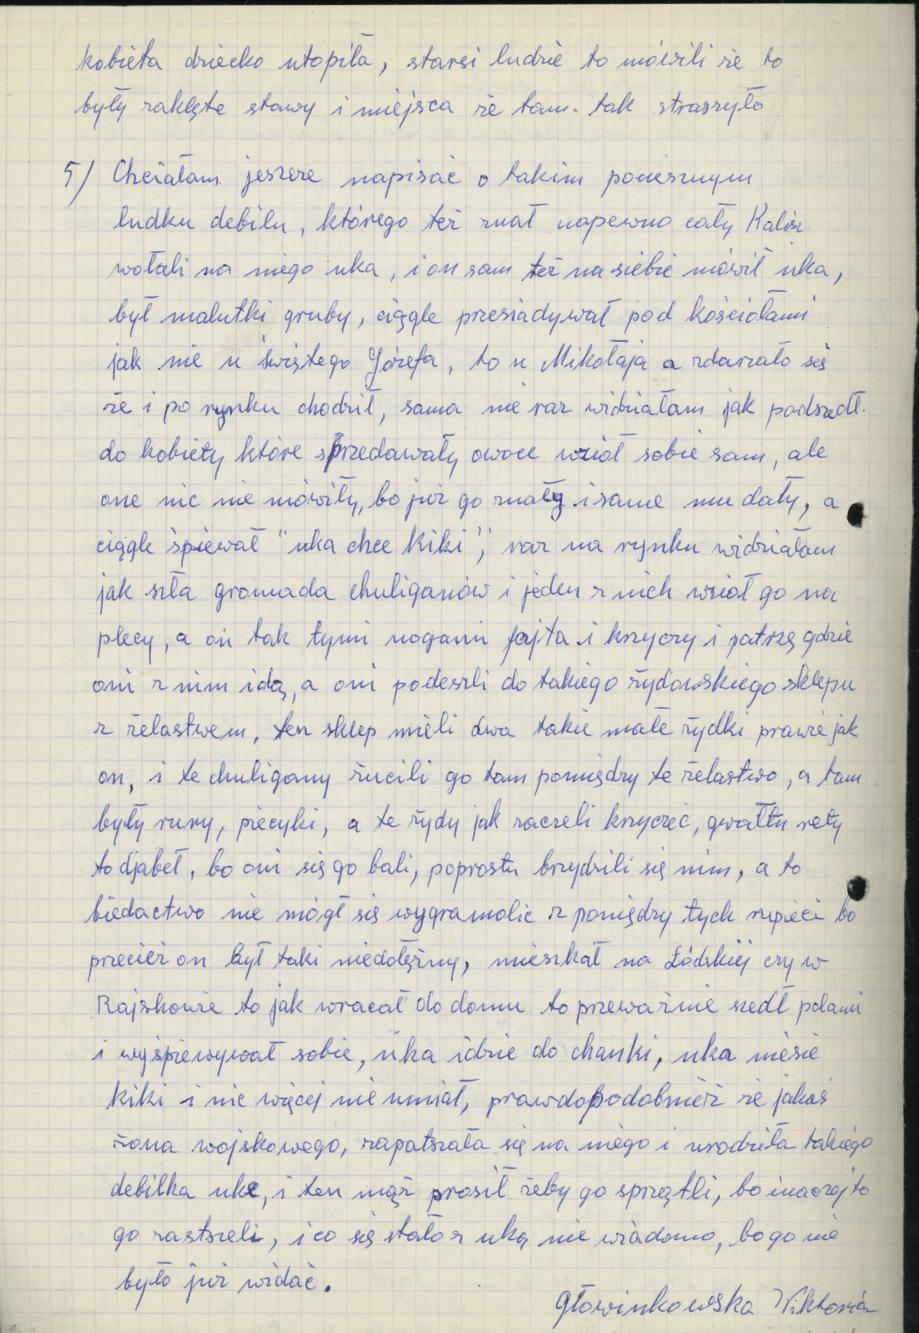 kobieta dziecko utopiła, starsi ludzie to mówili że to
były zaklęte stawy i miejsca że tam tak straszyło
5/ Chciałam jeszcze napisać o takim pociesznym
ludku debilu, którego też znał napewno cały Kalisz
wołali na niego uka, i on sam też na siebie mówił uka,
był malutki gruby, ciągle przesiadywał pod kościołami
jak nie u świętego Józefa, to u Mikołaja a zdarzało się
że i po rynku chodził, sama nie raz widziałam jak podszedł
do kobiety które sprzedawały owoce wziół sobie sam, ale
one nic nie mówiły, bo już go znały i same mu dały, a
ciągle śpiewał "uka chce kiki", raz na rynku widziałam
jak szła gromada chuliganów i jeden z nich wziół go na
plecy, a on tak tymi nogami fajta i krzyczy i patrzę gdzie
oni z nim idą, a oni podeszli do takiego żydowskiego sklepu
z żelastwem, ten sklep mieli dwa takie małe żydki prawie jak
on, i te chuligany żucili go tam pomiędzy te żelastwo, a tam
były rury, piecyki, a te żydy jak zaczeli krzyczeć, gwałtu rety
to djabeł, bo oni się go bali, poprostu brzydzili się nim, a to
biedactwo nie mógł się wygramolić z pomiędzy tych rupieci bo
przecież on był taki niedołężny, mieszkał na Łódzkiej czy w
Rajskowie to jak wracał do domu to przeważnie szedł polami
i wyśpiewywał sobie, uka idzie do chanki, uka niesie
kiki i nic więcej nie umiał, prawdopodobnież że jakaś
żona wojskowego, zapatrzała się na niego i urodziła takiego
debilka ukę, i ten mąż prosił żeby go sprzątli, bo inaczej to
go zastrzeli, i co się stało z uką nie wiadomo, bo go nie
było już widać.
Głowinkowska Wiktoria